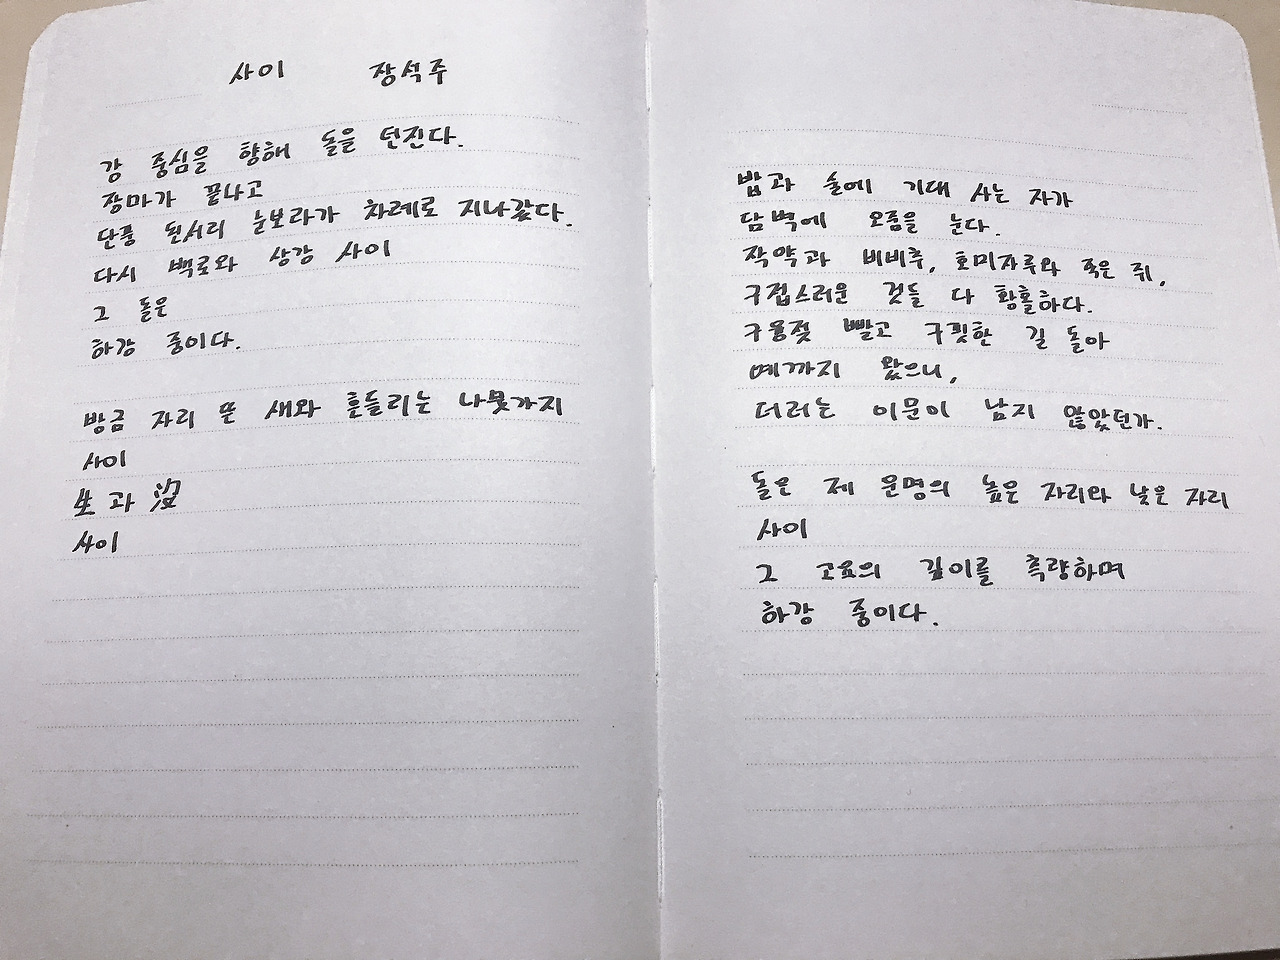 사이 장석주
강 중심을 향해 돌을 던진다.
장마가 끝나고
단풍 된서리 눈보라가 차례로 지나갔다.
다시 백로와 상강 사이
그 돌은
하강 중이다.
방금 자리 뜬 새와 흔들리는 나뭇가지
사이
生과 沒
사이
밥과 술에 기대 사는 자가
담벽에 오줌을 눈다.
작약과 비비추, 호미자루와 죽은 쥐,
구접스러운 것들 다 황홀하다.
구용젖 빨고 구핏한 길 돌아
예까지 왔으니,
더러는 이문이 남지 않았던가.
돌은 제 운명의 높은 자리와 낮은 자리
사이
그 고요의 깊이를 측량하며
하강 중이다.